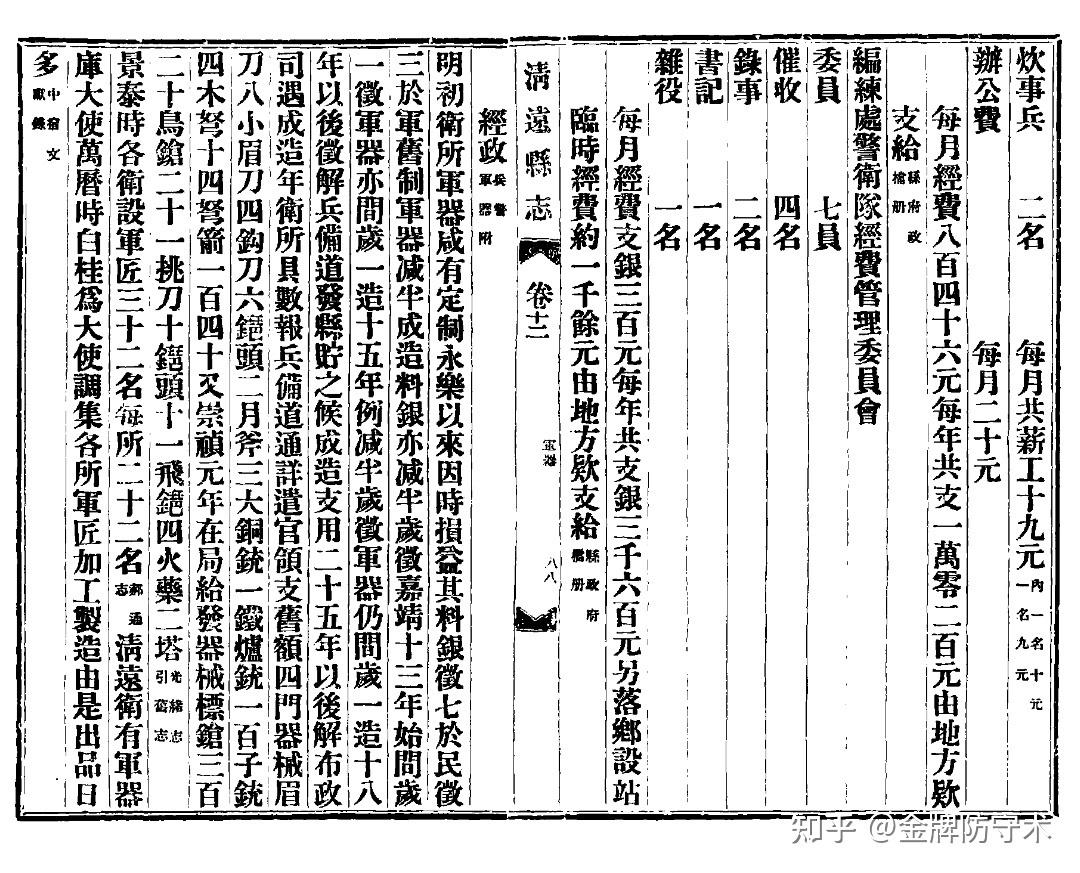 炊事兵 二名 每月共薪工十九元 內一名十元一名九元
辦公費 每月二十元
每月經費八百四十六元每年共支一萬零二百元由地方欵
支給 縣府政檔册
編練處警衛隊經費管理委員會
委員 七員
催收 四名
錄事 二名
書記 一名
雜役 一名
每月經費支銀三百元每年共支銀三千六百元另落鄉設站
臨時經費約一千餘元由地方欵支給 縣政府檔册
清遠縣志 卷十二 軍器 八八
經政 兵警軍器附
明初衛所軍器咸有定制永樂以來因時損益其料銀徵七於民徵
三於軍舊制軍器减半成造料銀亦减半歲徵嘉靖十三年始間歲
一徵軍器亦間歲一造十五年例减半歲徵軍器仍間歲一造十八
年以後徵解兵備道發縣貯之候成造支用二十五年以後解布政
司遇成造年衛所具數報兵備道通詳遣官領支舊額四門器械眉
刀八小眉刀四鈎刀六鎞頭二月斧三大銅銃一鐵爐銃一百子銃
四木弩十四弩箭一百四十又崇禎元年在局給發器械標鎗三百
二十鳥鎗二十一挑刀十鎞頭十一飛鎞四火藥二塔 光緒志引舊志
景泰時各衛設軍匠三十二名每所二十二名 郝通志 清遠衛有軍器
庫大使萬曆時白桂爲大使調集各所軍匠加工製造由是出品日
多 中宿文獻錄
知乎 @金牌防守术